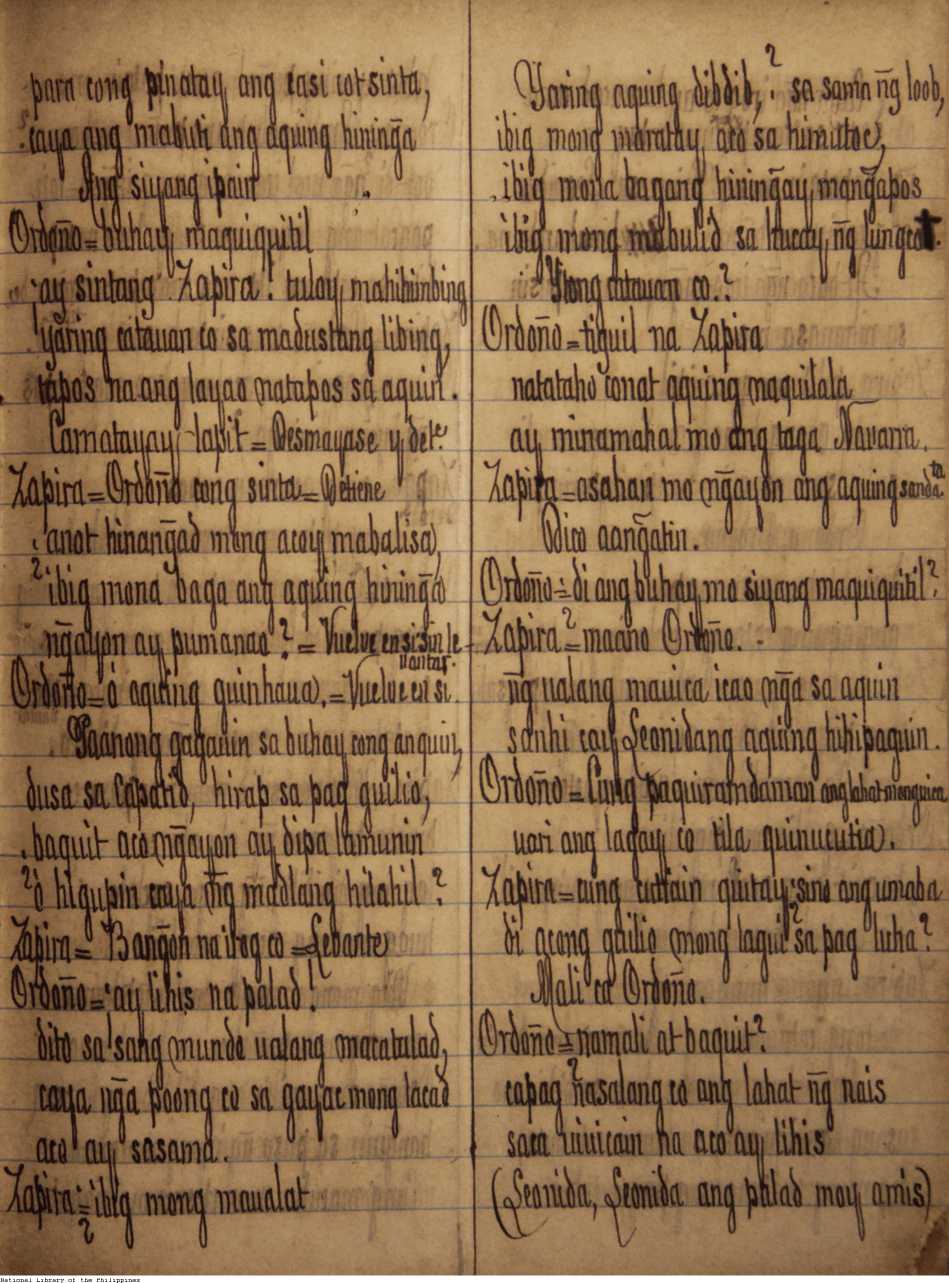 para cong pinatay ang casi cot sinta,
caya ang mabuti ang aquing hininḡa
Ang siyang ipain
Ordoño = buhay maquiquitil
ay sintang Zapira! tuloy mahihimbing
yaring catauan co sa madustang libing,
tapos na ang layao natapos sa aquin.
Camatayay lapit = Desmayase y dete.
Zapira = Ordoño cong sinta = Detiene
anot hinanḡad mong acoy mabalisa,
?ibig mona baga ang aquing hininḡa
nḡayon ay pumanao? = Vuelve en si sin le-
vantar.
Ordoño = ó aquing guinhaua. = Vuelve en si.
Paanong gagauin sa buhay cong anquin,
dusa sa Capatid, hirap sa pag guilio,
baquit aco nḡayon ay dipa lamunin
?ò higupin caya nḡ madlang hilahil?
Zapira = Banḡon na irog co = Levante
Ordoño = ay lihis na palad!
dito sa sang mundo ualang macatulad,
caya nḡa poong co sa gayac mong lacad
aco ay sasama.
Zapira = ?ibig mong maualat
Yaring aquing dibdib,? sa sama nḡ loob,
ibig mong maratay aco sa himutoc,
ibig mona bagang hininḡay manḡapos
ibig mong mabulid sa hucay nḡ lungcot.
Ytong catauan co.?
Ordoño = tiguil na Zapira
natataho conat aquing naquilala
ay minamahal mo ang taga Navarra.
Zapira = asahan mo nḡayon ang aquing sandata
Dico aanḡatin.
Ordoño = di ang buhay mo siyang maquiquitil?
Zapira = ?maano Ordoño.
nḡ ualang mauica icao nḡa sa aquin
sanhi cay Leonidang aquing hihipaguin.
Ordoño = Cung paquiramdaman ang lahat mong uica
uari ang lagay co tila quinucutia.
Zapira = cung turain quitay, sino ang umaba
di acong guilio mong lagui sa pag luha?
Mali ca Ordoño.
Ordoño = namali at baquit?
capag nasalang co ang lahat nḡ nais
saca uiuicain na aco ay lihis
(Leonida, Leonida ang palad moy amis)
National Library of the Philippines